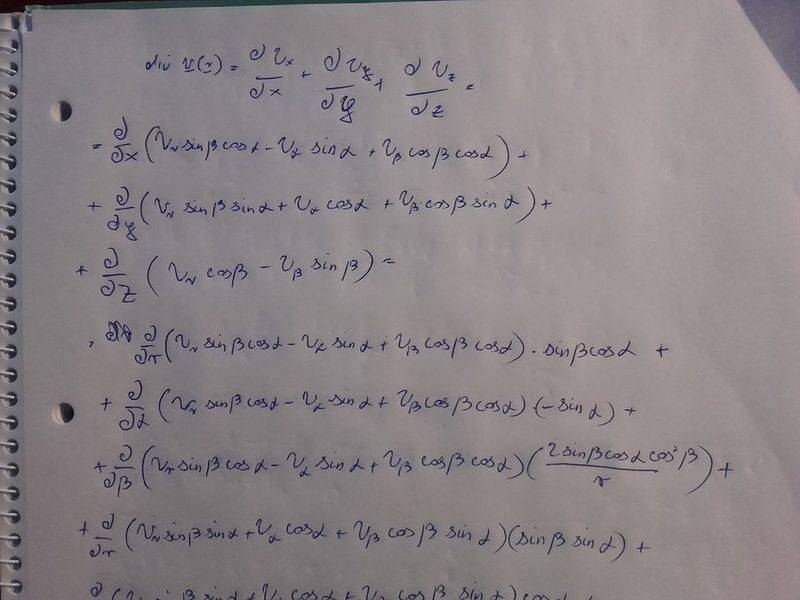 div v(r) = ∂Vx/∂x + ∂Vy/∂y + ∂Vz/∂z =
= ∂/∂x (Vr sinβ cosα - Vα sinα + Vβ cosβ cosα) +
+ ∂/∂y (Vr sinβ sinα + Vα cosα + Vβ cosβ sinα) +
+ ∂/∂z (Vr cosβ - Vβ sinβ) =
∂/∂r (Vr sinβ cosα - Vα sinα + Vβ cosβ cosα) · sinβ cosα +
+ ∂/∂α (Vr sinβ cosα - Vα sinα + Vβ cosβ cosα) · (-sinα) +
+ ∂/∂β (Vr sinβ cosα - Vα sinα + Vβ cosβ cosα) (2 sinβ cosα cos²β / r) +
+ ∂/∂r (Vr sinβ sinα + Vα cosα + Vβ cosβ sinα) (sinβ sinα) +